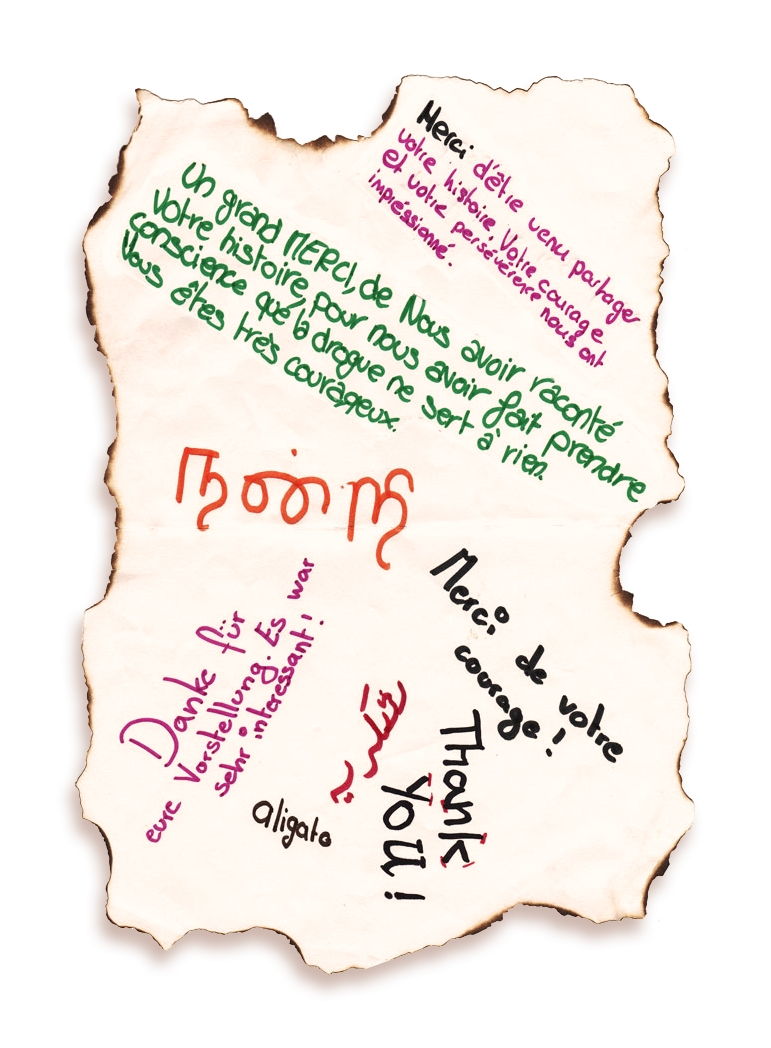 Merci d'être venu partager
votre histoire. Votre courage
et votre persévérence nous ont
impréssionné.
Un grand MERCI, de Nous avoir raconté
votre histoire, pour nous avoir fait prendre
conscience qué la drogue ne sert à rien.
Vous êtes très courageux.
நன்றி
Merci de votre
courage !
Danke für
eure Vorstellung. Es war
sehr interessant !
Thank
YOU !
aligato